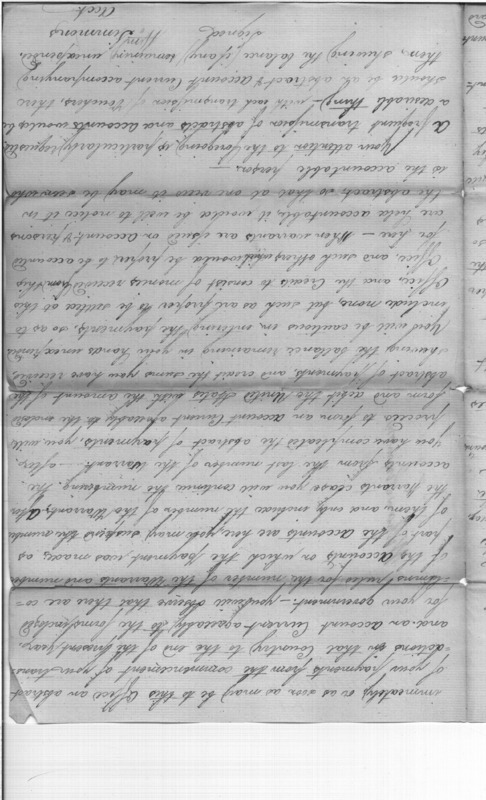 immediately or as soon as may be to this Office an abstract
of your payments from the commencement of your trans
=actions in that Country to the end of the present year,
and an account Current agreeably to the forms inclosed
for your government — you will observe that there are co=
=lumns ruled for the number of the Warrants and number
of the accounts on which the payment was made; as
part of the accounts are here, you will the number
of them, and only include the number of the Warrants, after
the Warrants close you will continue the numbering the
accounts from the last number of the Warrant. — after
you have completed the abstract of payments, you will
proceed to form an account Current agreeably to the inclosed
form and debit the United States with the amount of the
abstract of payments and credit the sums you have received,
shewing the balance remaining in your hands unexpended
You will be cautious in entering the payments, so as to
include none, but such as are proper to be settled at this
Office, and the Credits to consist of monies received from this
Office and such others, which would be proper to be accounted
for, here — When warrants are issued on account, & persons
are held accountable, it would be well to notice it in
the abstract, so that at one view it may be
is the accountable person. —
Your attention to the foregoing is particularly requested
A frequent transmission of abstracts and accounts would be
a desirable thing — with each transmission of Vouchers there
should be an abstract & account Current accompanying
them, shewing the balance if any remaining unexpended,
Signed
Wm. Simmons
Acct